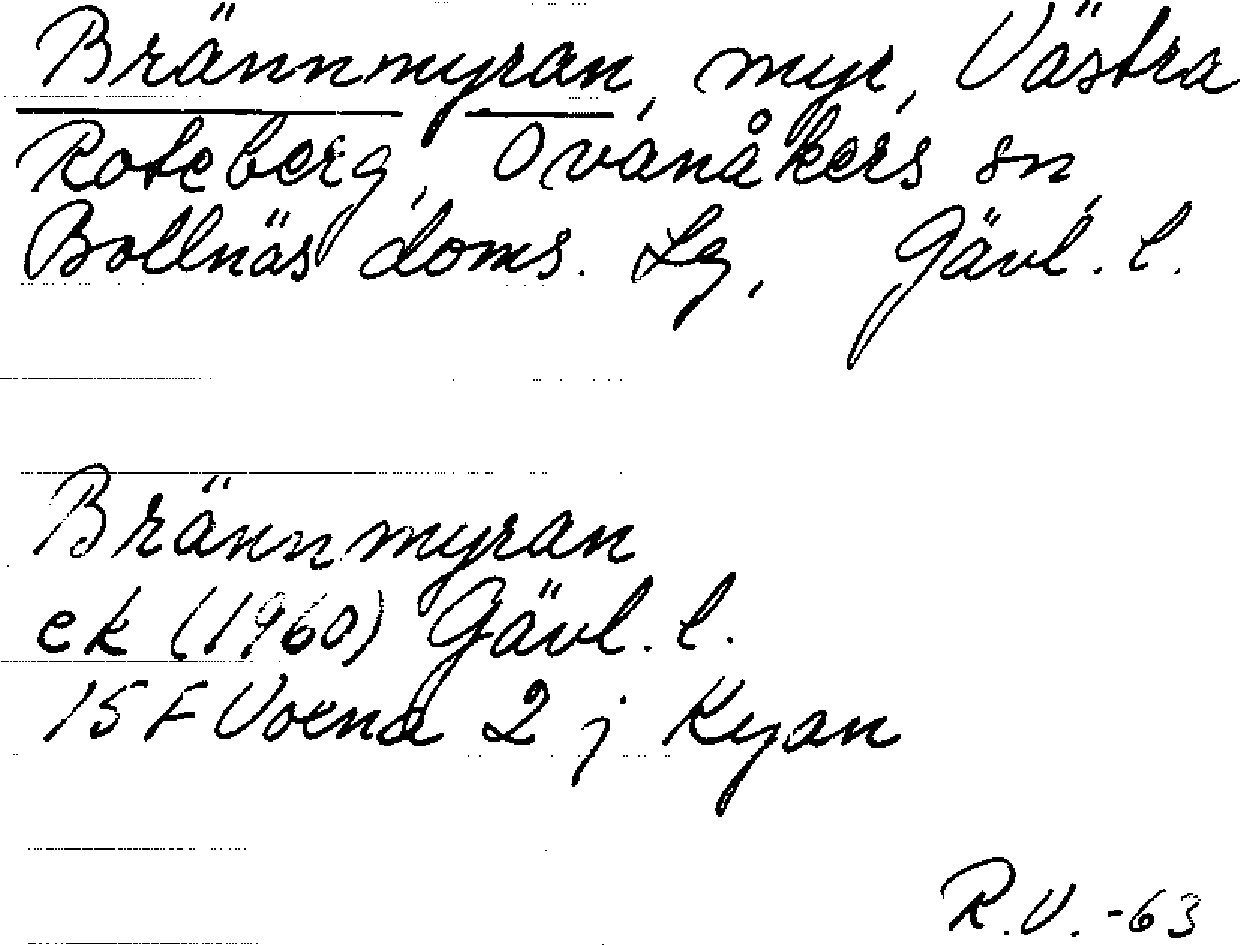 Brännmyran, myr, Västra
Roteberg, Ovanåkers sn,
Bollnäs doms. Lg, Gävl. l.
Brännmyran
ek (1960) Gävl. l.
15 F Voxna 2 j Kyan
R.V. -63